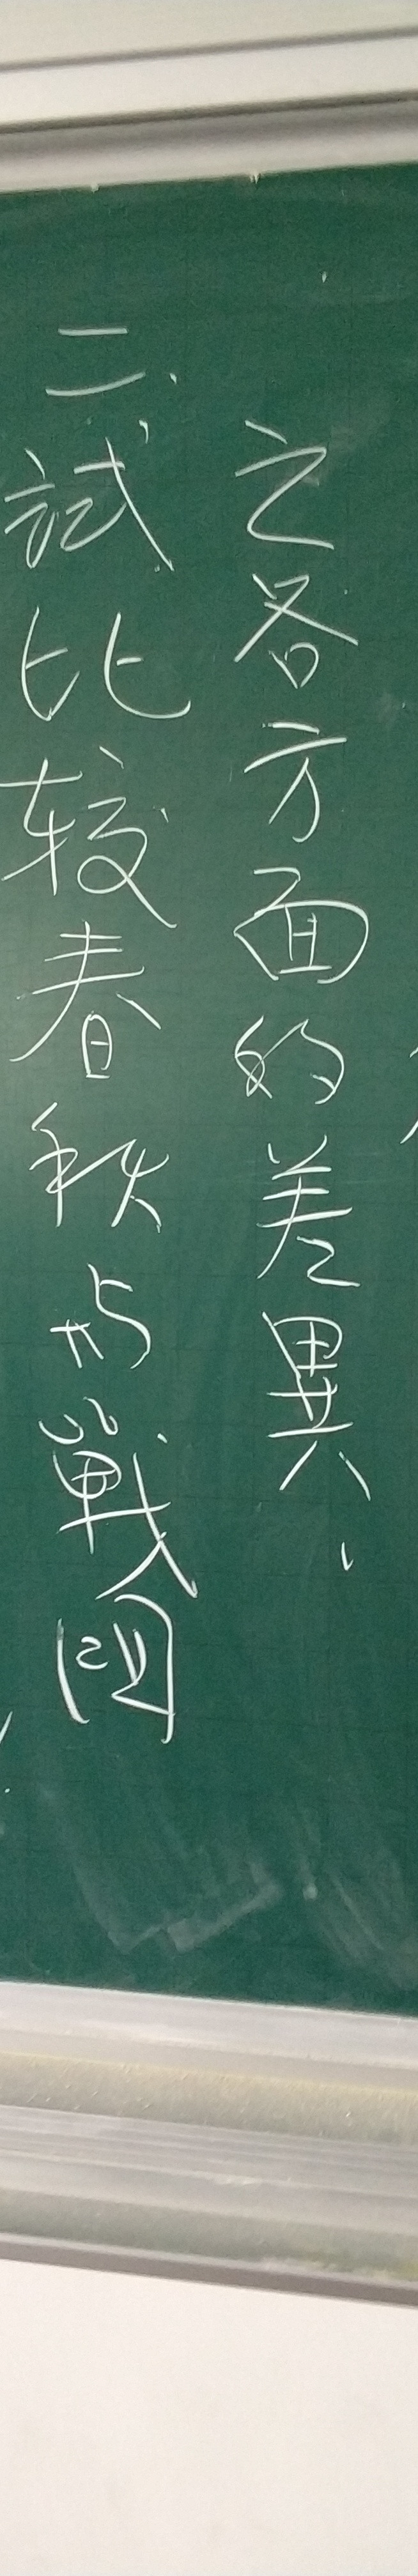 之各方面的差異、
二、試比較春秋与戰国